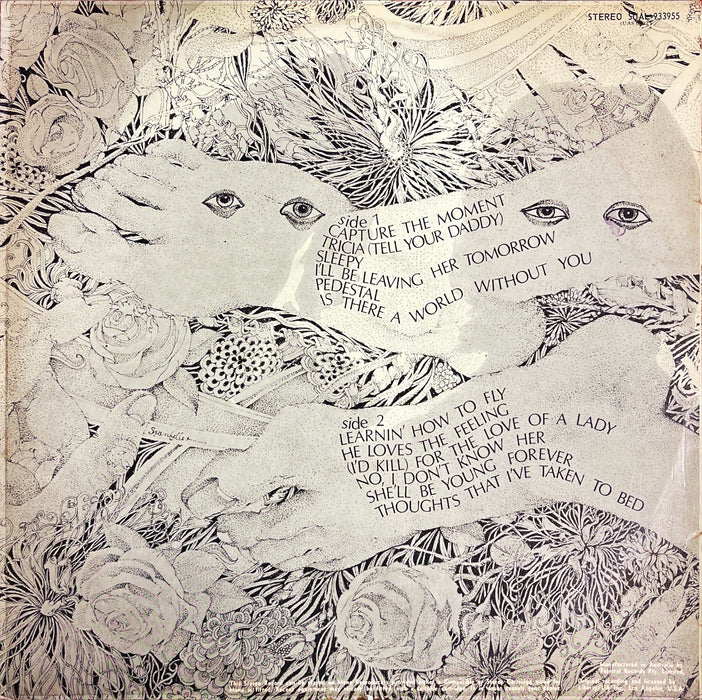 STEREO SUAL-933955
side 1
CAPTURE THE MOMENT
TRICIA (TELL YOUR DADDY)
SLEEPY
I'LL BE LEAVING HER TOMORROW
PEDESTAL
IS THERE A WORLD WITHOUT YOU
side 2
LEARNIN' HOW TO FLY
HE LOVES THE FEELING
(I'D KILL) FOR THE LOVE OF A LADY
NO, I DON'T KNOW HER
SHE'LL BE YOUNG FOREVER
THOUGHTS THAT I'VE TAKEN TO BED
This Stereo
Manufactured in Australia by
Festival Records Pty. Limited.
Original recording and licensed by
Liberty/UA Inc., Los Angeles, U.S.A.